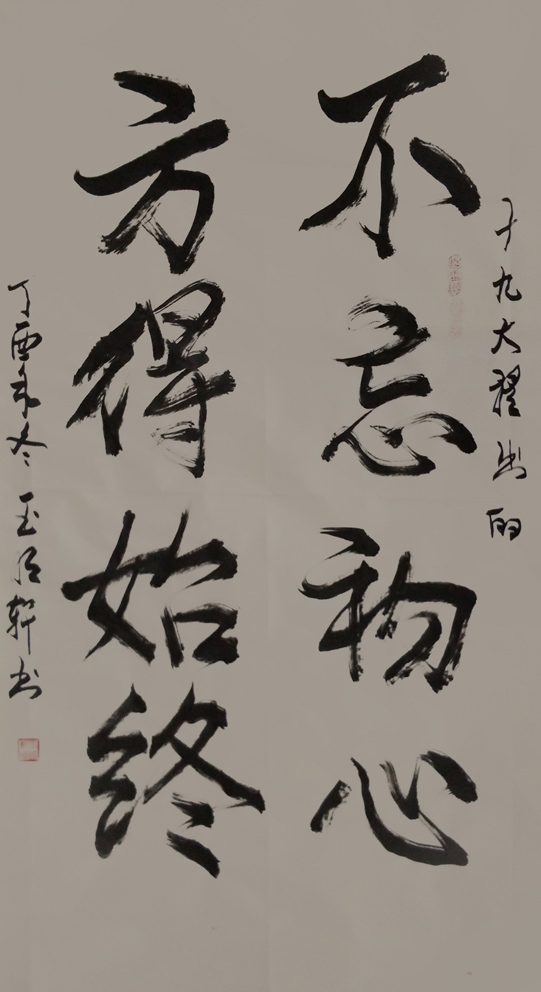 十九大提出的
不忘初心
方得始终
丁酉年冬 玉 轩书